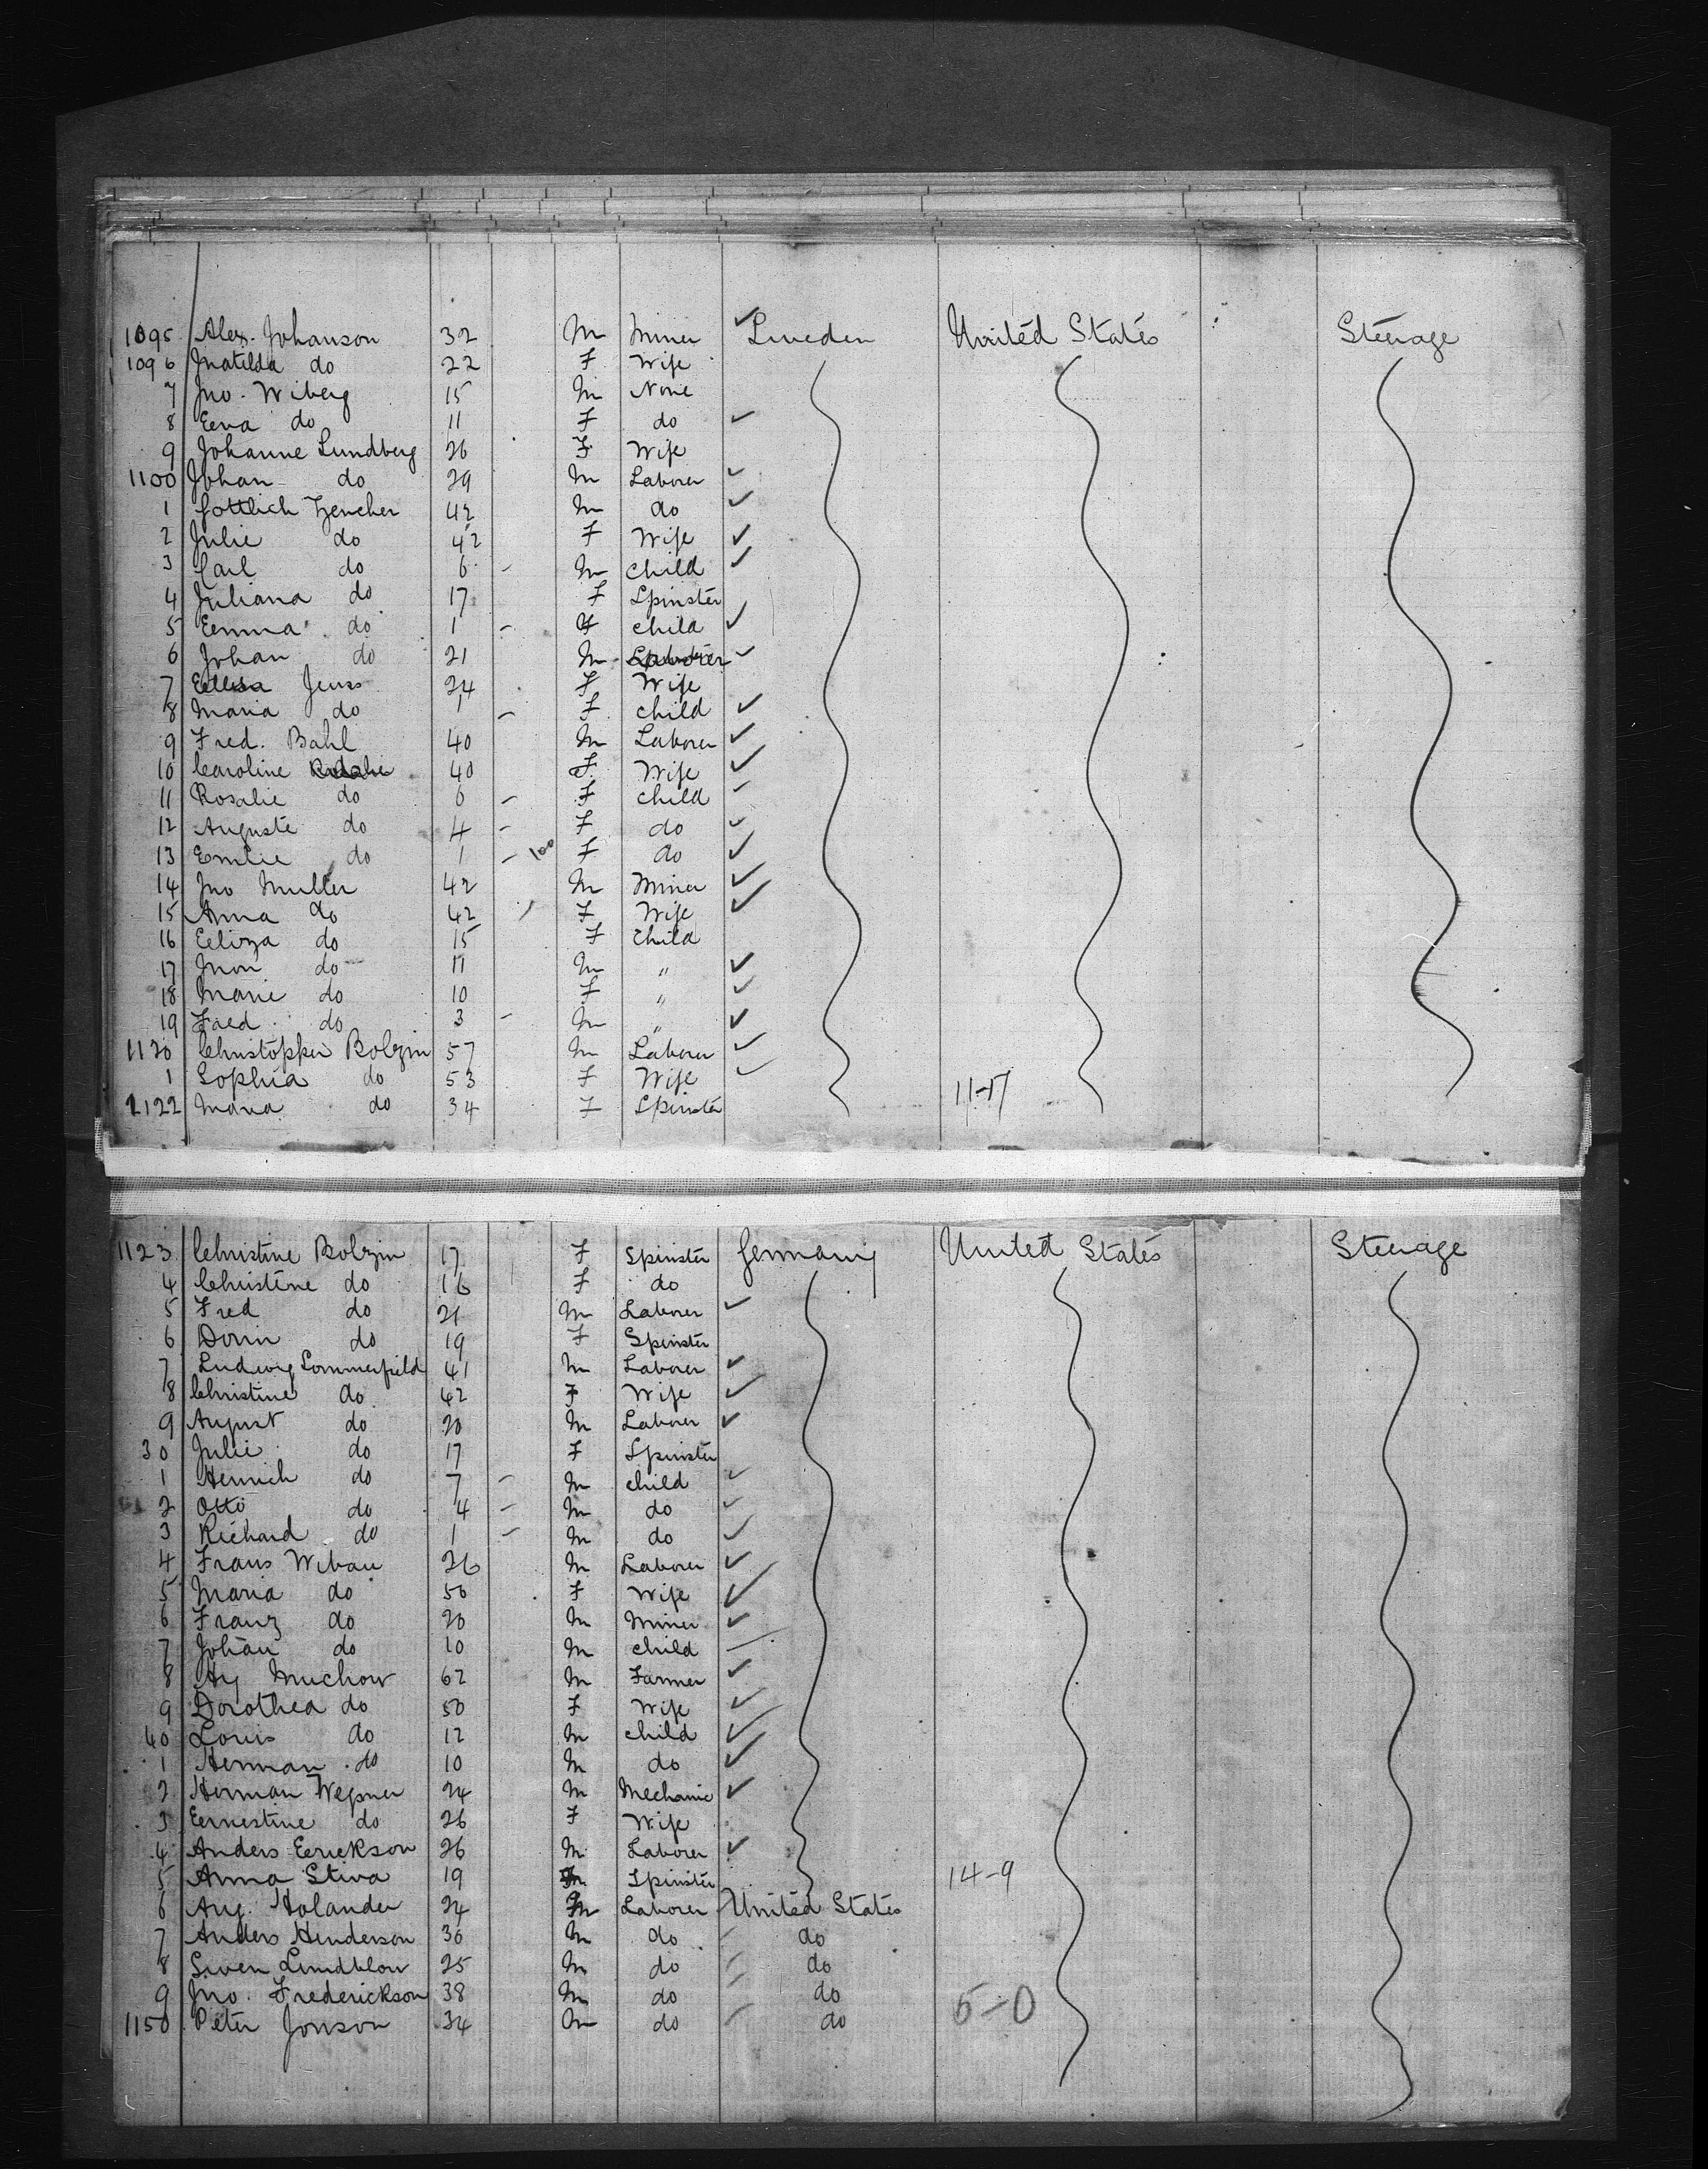 1095 Alex. Johanson 32 M Miner Sweden United States Steerage
1096 Matilda do 22 F Wife
7 Jno. Wiberg 15 M None
8 Eeva do 11 F do
9 Johanne Lundberg 26 F Wife
1100 Johan do 29 M Laborer
1 Gottlich 42 M do
2 Julie do 42 F Wife
3 Carl do 6 M Child
4 Juliana do 17 F Spinster
5 Eemma do 1 F Child
6 Johan do 21 M Laborer
7 Jenss 24 F Wife
8 Maria do 1 F Child
9 Fred. Bahl 40 M Laborer
10 Caroline 40 F Wife
11 Rosalie do 6 F Child
12 Auguste do 4 F do
13 Eemlie do 1 F do
14 Jno Muller 42 M Miner
15 Anna do 42 F Wife
16 Eeliza do 15 F Child
17 do 11 M "
18 Marie do 10 F "
19 Fred. do 3 M "
1120 Christopher Bolzin 57 M Laborer
1 Sophia do 53 F Wife 11-17
1122 Maria do 34 F Spinster
1123 Christine Bolzin 17 F Spinster Germany United States Steerage
4 Christine do 16 F do
5 Fred do 21 M Laborer
6 Dorin do 19 F Spinster
7 Ludwig Sommerfield 41 M Laborer
8 Christine do 42 F Wife
9 August do 20 M Laborer
30 Julie do 17 F Spinster
1 Henrich do 7 M Child
2 Otto do 4 M do
3 Richard do 1 M do
4 Frans Wibau 26 M Laborer
5 Maria do 50 F Wife
6 Franz do 20 M Miner
7 Johan do 10 M Child
8 Hy Muchow 62 M Farmer
9 Dorothea do 50 F Wife
40 Louis do 12 M Child
1 Herman do 10 M do
2 Herman Wegner 24 M Mechanic
3 Eernestine do 26 F Wife
4 Anders Eerickson 26 M Laborer
5 Anna Stiva 19 Spinster 14-9
6 Aug. Holander 24 M Laborer United States
7 Anders Henderson 36 M do do
8 Swen Lundblow 25 M do do
9 Jno. Frederickson 38 M do do 5-0
1150 Peter Jonson 34 M do do